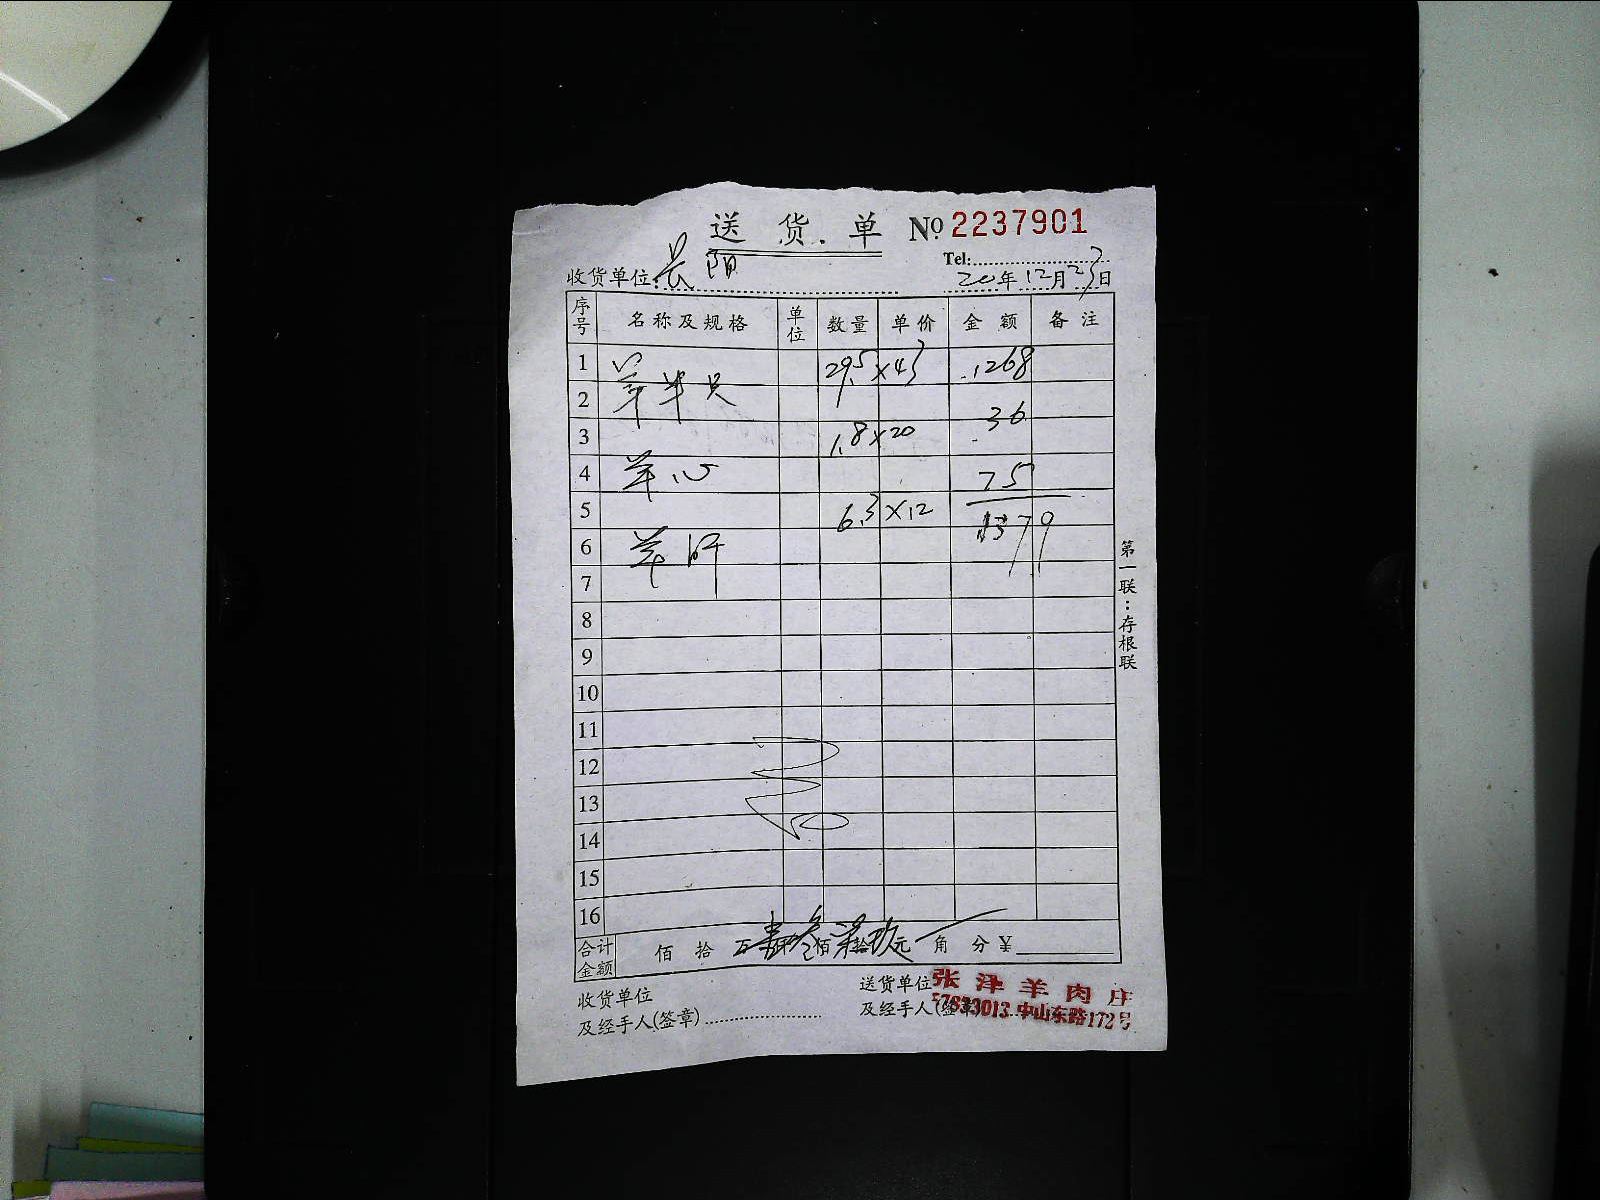 送货单 № 2237901
Tel:
收货单位: 长阳 20年12月23日
序号 名称及规格 单位 数量 单价 金额 备注
1 29.5×43 1268
2 羊半只 36
3 1.8×20
4 羊心 75
5 6.3×12 1379
6 羊肝
7
8
9
10
11
12
13
14
15
16
合计金额 佰 拾 万壹仟叁佰柒拾玖元 角 分 ¥
收货单位 送货单位 张泽羊肉庄
及经手人(签章) 及经手人(签章) 57633013 中山东路172号
第一联:存根联